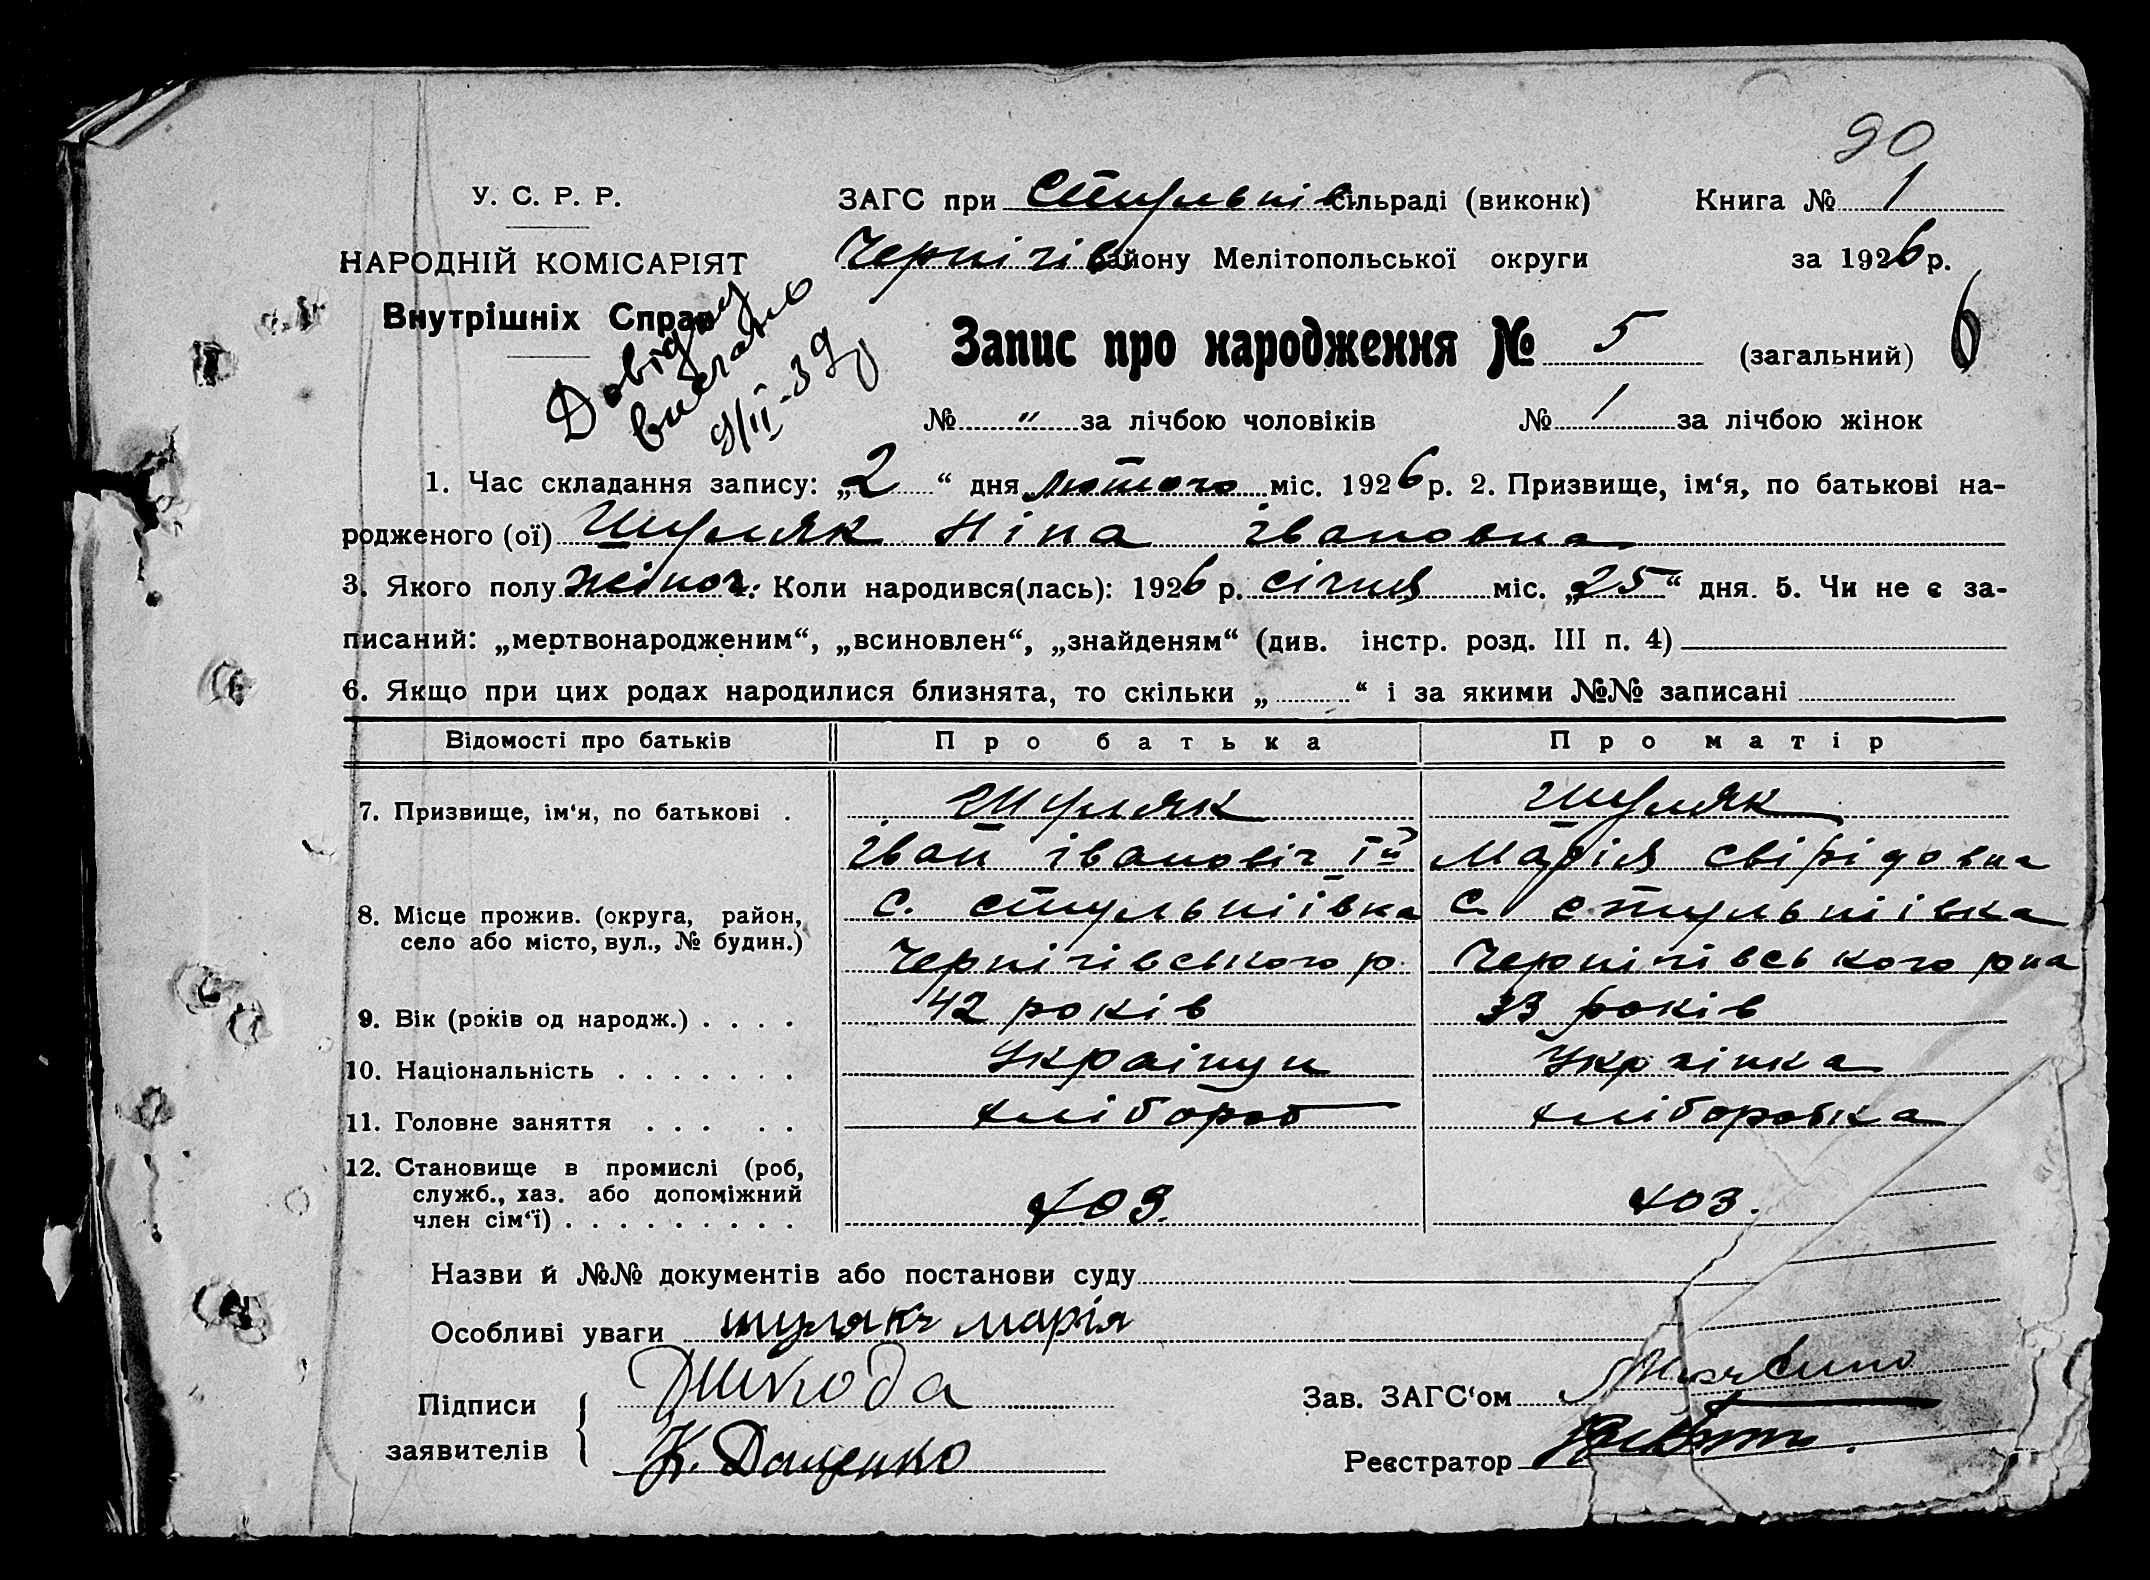 90
У. С. Р. Р.
ЗАГС при Стульнів сільраді (виконк)
Книга № 1
НАРОДНІЙ КОМІСАРІЯТ
Чернігів району Мелітопольської округи
за 1926 р.
Внутрішніх Справ
Довідку
видано
9/II-39
Запис про народження № 5 (загальний) 6
№ " за лічбою чоловіків № 1 за лічбою жінок
1. Час складання запису: „2“ дня лютого міс. 1926 р. 2. Призвище, ім‘я, по батькові на-
родженого (ої) Шуляк Ніна івановна
3. Якого полу жіноч. 4. Коли народився(лась): 1926 р. січня міс. „25“ дня. 5. Чи не є за-
писаний: „мертвонародженим“, „всиновлен“, „знайденям“ (див. інстр. розд. III п. 4)
6. Якщо при цих родах народилися близнята, то скільки „ “ і за якими №№ записані
Відомості про батьків Про батька Про матір
7. Призвище, ім‘я, по батькові . Шуляк Шуляк
іван івановіч Iй Марія свірідовна
8. Місце прожив. (округа, район, с. стульніівка с. стульніівка
село або місто, вул., № будин.) Чернігівського р. Чернігівського рна
9. Вік (років од народж.) . . . . 42 років 33 років
10. Національність . . . . . . . Украінци Украінка
11. Головне заняття . . . . . хлібороб хліборобка
12. Становище в промислі (роб,
служб., хаз. або допоміжний
член сім‘ї) . . . . . . . . . хоз. хоз.
Назви й №№ документів або постанови суду
Особливі уваги шулякъ марія
Підписи
заявителів
К. Дащенко
Зав. ЗАГС‘ом
Реєстратор